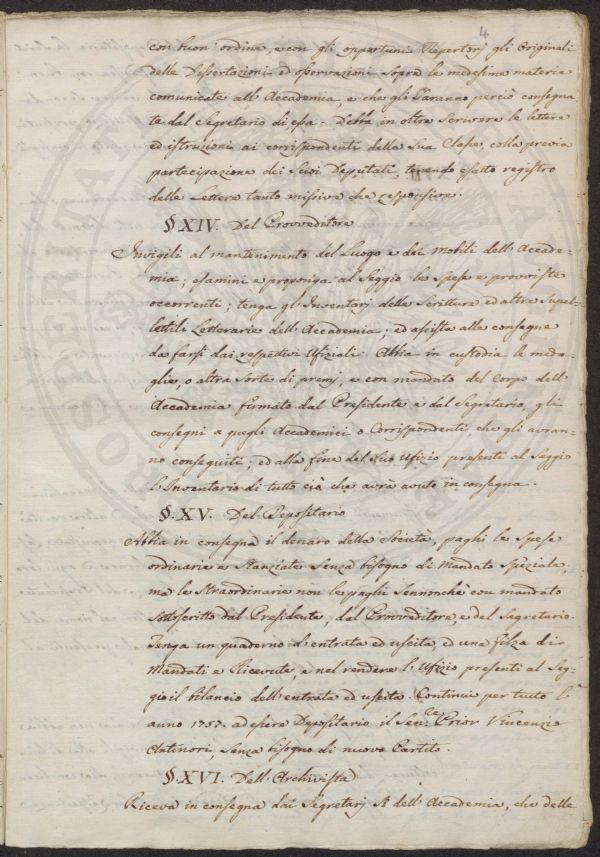 4
con buon'ordine, e con gli opportuni Repertorj gli Originali
delle Dissertazioni ed osservazioni sopra le medesime materie
comunicate all'Accademia, e che gli saranno perciò consegna
te dal Segretario di essa. Debba in oltre Scrivere le lettere
ed istruzioni ai corrispondenti della Sua Classe, colla previa
partecipazione dei Suoi Deputati, tenendo esatto registro
delle Lettere tanto missive che responsive.
§ XIV. Del Provveditore
Invigili al mantenimento del Luogo e dei Mobili dell'Accade-
mia; esamini e proponga al Seggio le Spese e provviste
occorrenti; tenga gl'Inventarj delle Scritture ed altre Supel-
lettili Letterarie dell'Accademia; ed assista alle consegne
da farsi dai respettivi Ufiziali. Abbia in custodia le meda-
glie, o altra Sorte di premj, e con mandato del Corpo dell'
Accademia firmato dal Presidente e dal Segretario, gli
consegni a quegli Accademici o Corrispondenti, che gli avran-
no conseguiti; ed alla fine del Suo Ufizio presenti al Seggio
l'Inventario di tutto ciò che avrà avuto in consegna.
§. XV. Del Depositario
Abbia in consegna il denaro della Società, paghi le Spese
ordinarie e Stanziate Senza bisogno di Mandato Speziale,
ma le Straordinarie non le paghi Sennonchè con mandato
Sottoscritto dal Presidente, dal Provveditore, e dal Segretario.
Tenga un quaderno d'entrata ed uscita, ed una filza di
Mandati e Ricevute, e nel rendere l'Ufizio presenti al Seg-
gio il bilancio dell'entrata ed uscita. Continui per tutto l'
anno 1757. ad essere Depositario il Sen.re Prior Vincenzio
Antinori, Senza bisogno di nuovo Partito.
§. XVI. Dell'Archivista
Riceva in consegna dai Segretarj sì dell'Accademia, che delle